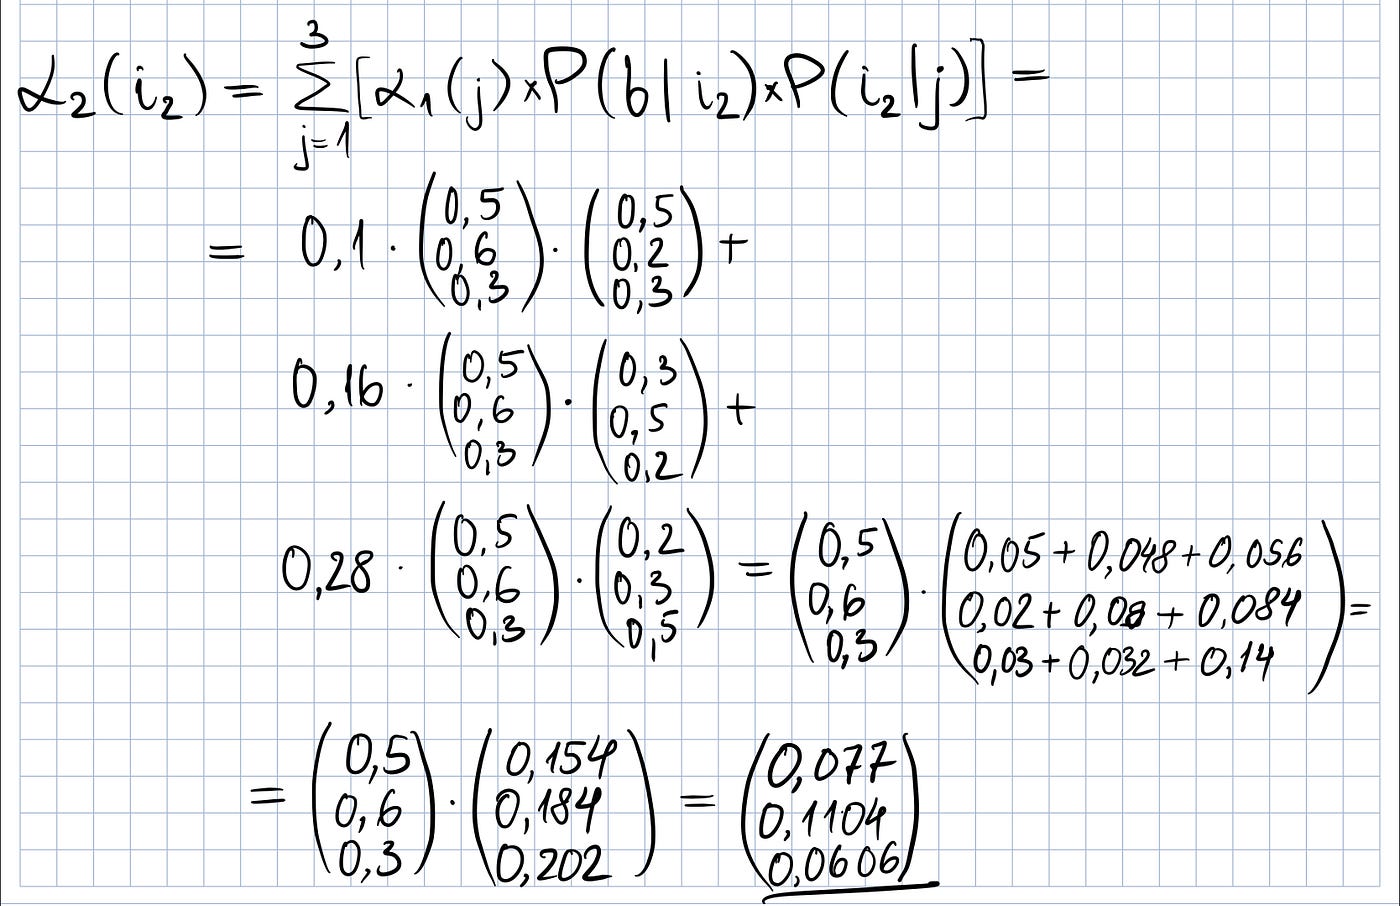 α₂(i₂) = ∑_{j=1}^{3} [α₁(j) × P(b | i₂) × P(i₂ | j)] =
= 0,1 · (0,5 0,6 0,3) · (0,5 0,2 0,3) +
0,16 · (0,5 0,6 0,3) · (0,3 0,5 0,2) +
0,28 · (0,5 0,6 0,3) · (0,2 0,3 0,5) = (0,5 0,6 0,3) · (0,05 + 0,048 + 0,056 0,02 + 0,08 + 0,084 0,03 + 0,032 + 0,14) =
= (0,5 0,6 0,3) · (0,154 0,184 0,202) = (0,077 0,1104 0,0606)